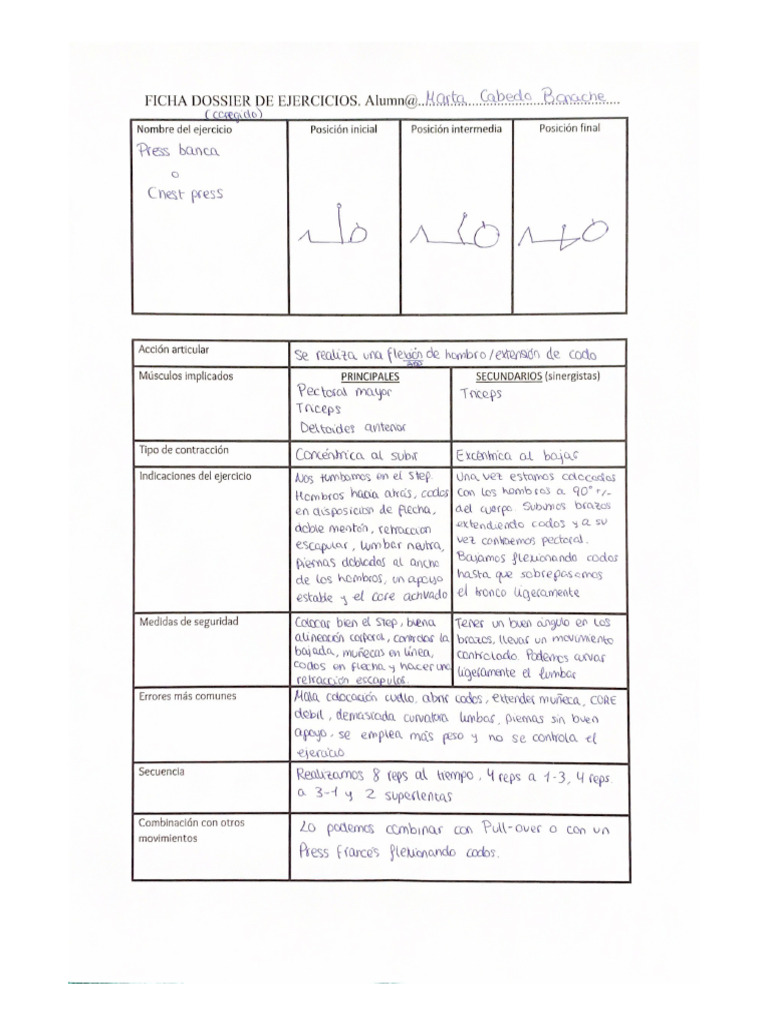 FICHA DOSSIER DE EJERCICIOS. Alumn@ Marta Cabedo Bonache
(coregido)
Nombre del ejercicio
Posición inicial
Posición intermedia
Posición final
Press banca
o
Chest press
Acción articular
Se realiza una flexión de hombro/extensión de codo
Músculos implicados
PRINCIPALES
SECUNDARIOS (sinergistas)
Pectoral mayor
Triceps
Deltoides anterior
Triceps
Tipo de contracción
Concéntrica al subir
Excéntrica al bajar
Indicaciones del ejercicio
Nos tumbamos en el Step.
Hombros hacia atrás, codos
en disposicion de flecha,
doble mentón, retraccion
escapular, lumbar neutra,
piernas dobladas al ancho
de los hombros, un apoyo
estable y el core activado
Una vez estamos colocados
con los hombros a 90° +/-
del cuerpo. Subimos brazos
extendiendo codos y a su
vez contraemos pectoral.
Bajamos flexionando codos
hasta que sobrepasemos
el tronco ligeramente
Medidas de seguridad
Colocar bien el Step, buena
alineación corporal, controlar la
bajada, muñecas en línea,
codos en flecha y hacer una
retracción escapular.
Tener un buen ángulo en los
brazos, llevar un movimiento
controlado. Podemos curvar
ligeramente el lumbar
Errores más comunes
Mala colocación cuello, abrir codos, extender muñeca, CORE
débil, demasiada curvatura lumbar, piernas sin buen
apoyo, se emplea más peso y no se controla el
ejercicio
Secuencia
Realizamos 8 reps al tiempo, 4 reps a 1-3, 4 reps
a 3-1 y 2 superlentas
Combinación con otros
movimientos
Lo podemos combinar con Pull-over o con un
Press Francés flexionando codos.